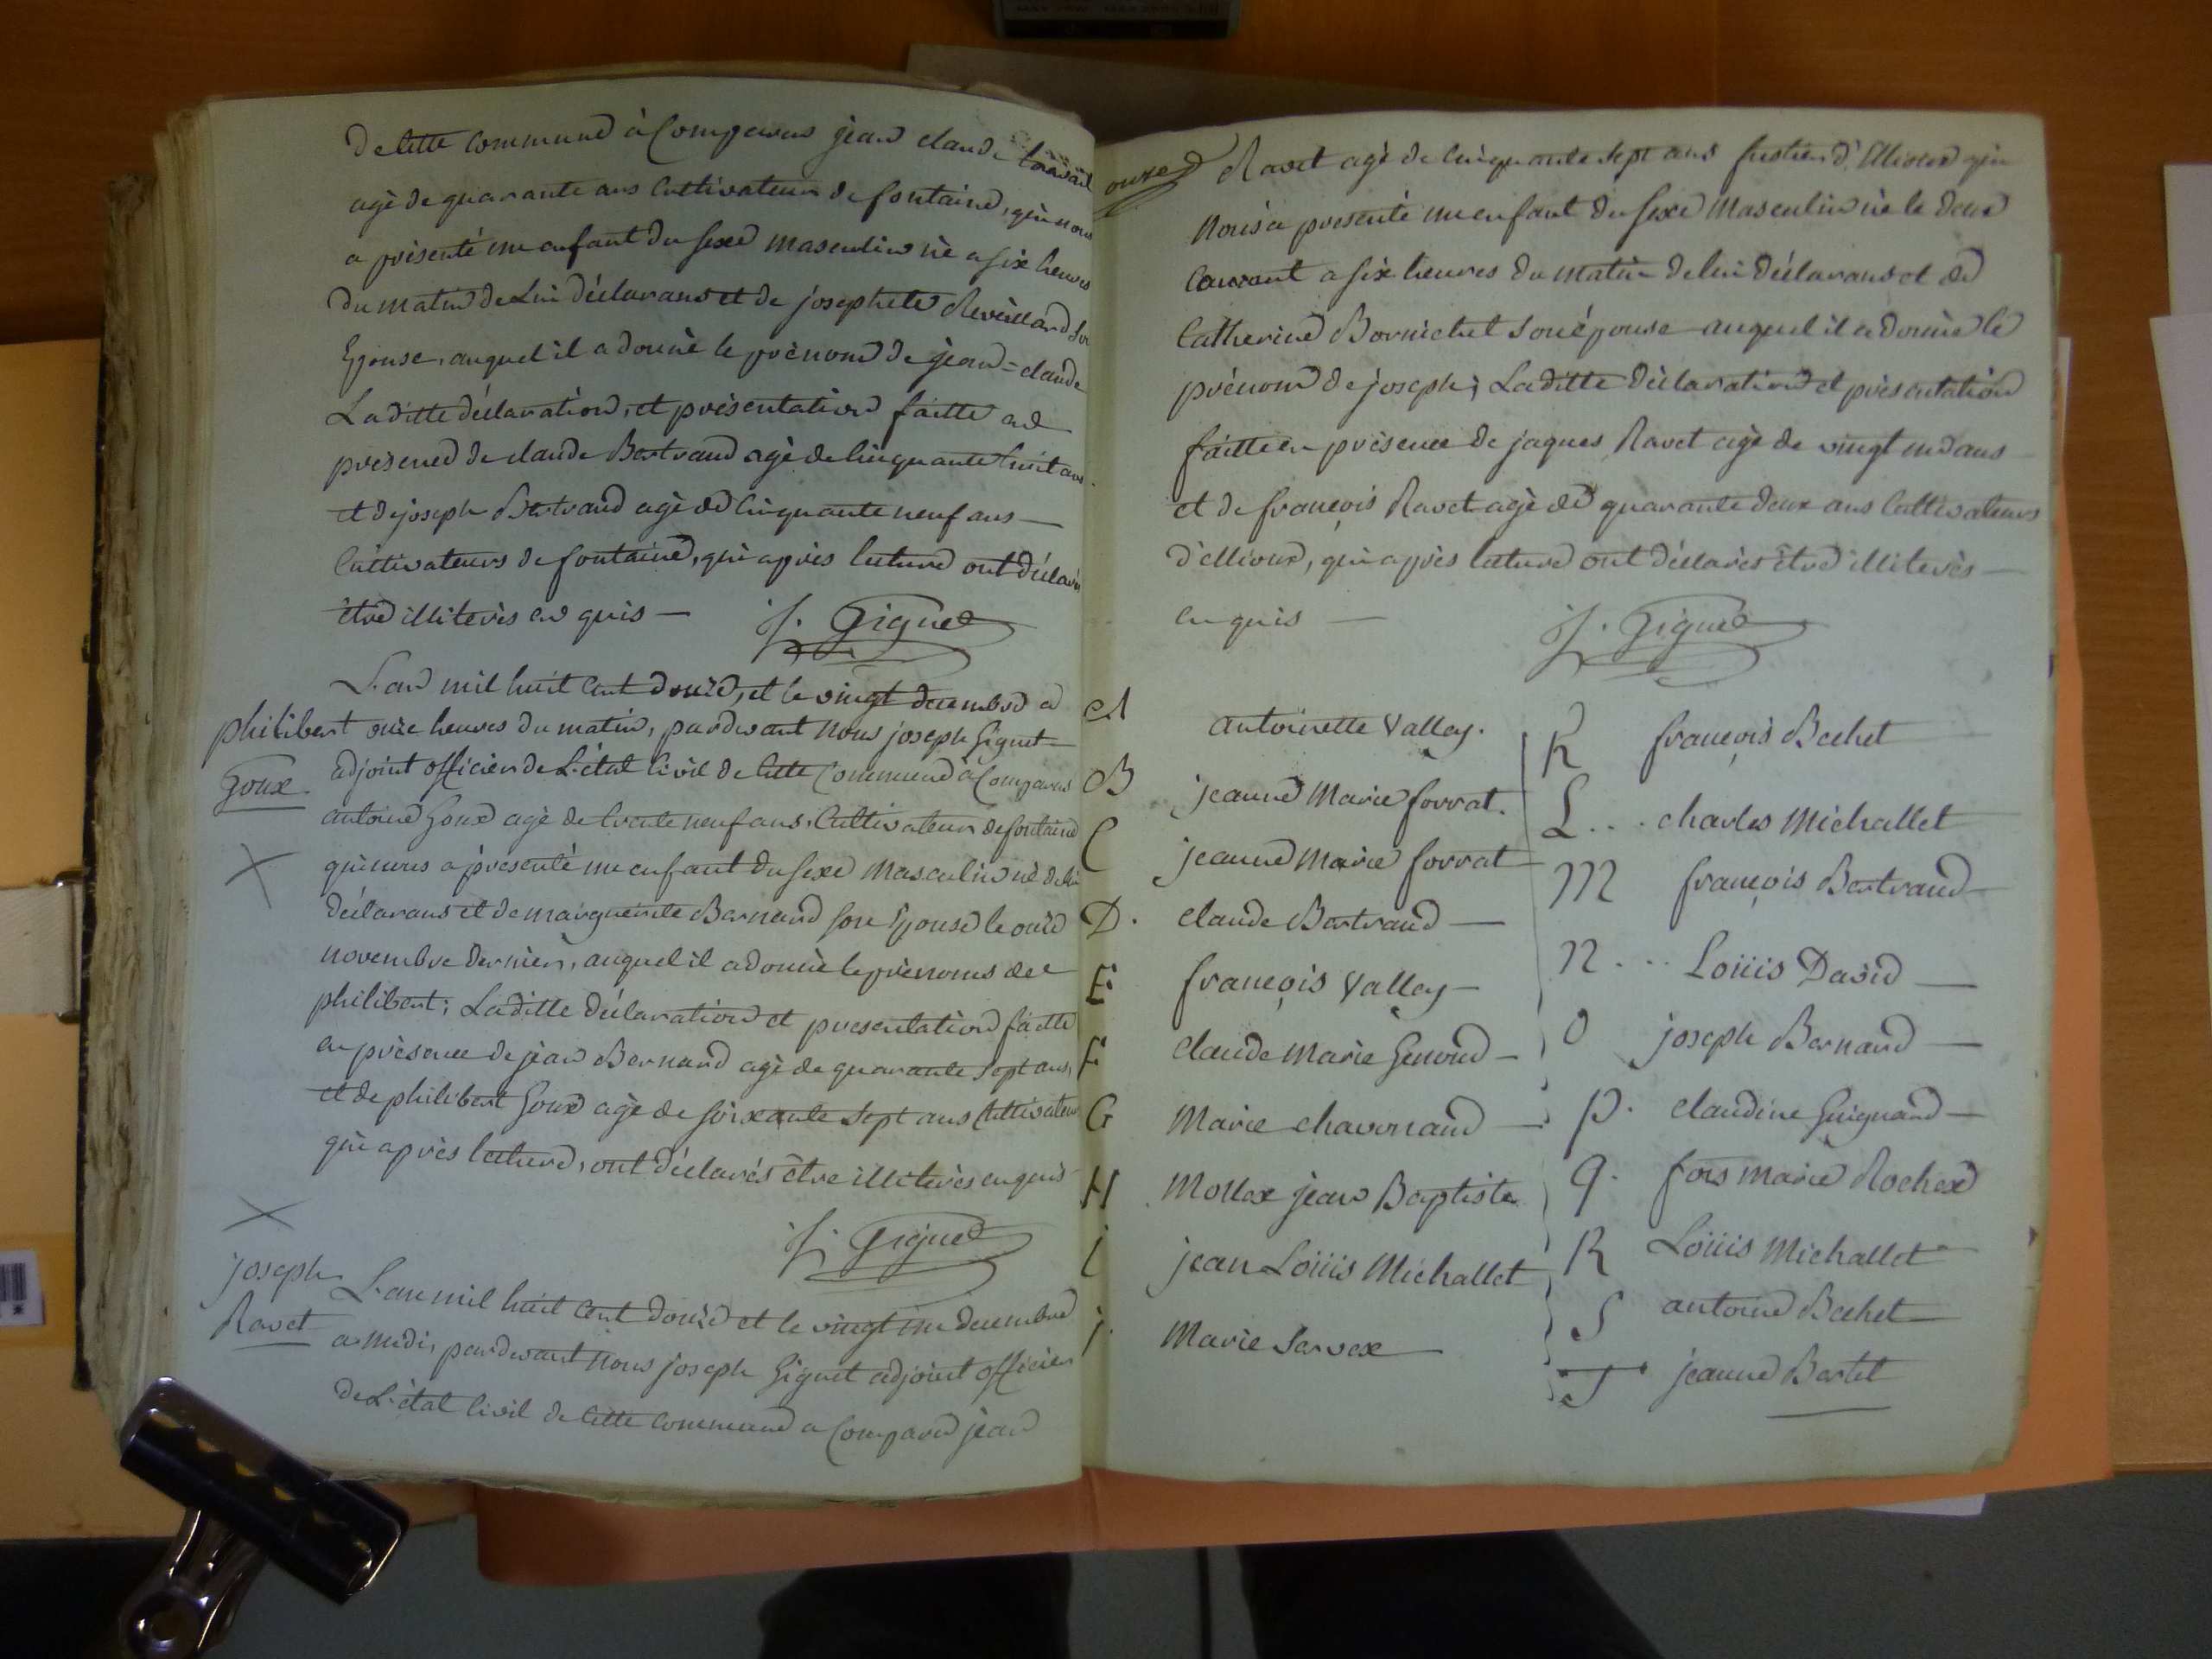 De cette commune à Comparus jean claude
agé de quarante ans Cultivateur de fontaine, qui nous
a présenté un enfant du sexe masculin né a six heures
du matin de Lui déclarant et de josephete Reveillard Son
Epouse, auquel il a donné le prénom de jean=claude
Laditte déclaration, et présentation faitte en
présence de claude Bertrand agé de Cinquante huit ans
et de joseph Bertrand agé de Cinquante neuf ans —
Cultivateurs de fontaine, qui après lecture ont déclaré
être illiterés en quis — J. Giguet
L'an mil huit Cent douze, et le vingt decembre a
philibert onze heures du matin, pardevant Nous joseph Giguet
Goux. adjoint officier de L'état Civil de Cette Commune a Comparus
antoine Goux agé de trente neuf ans, Cultivateur de fontaine
qui nous a présenté un enfant du sexe Masculin né de lui
déclarans et de marguerite Bernard son Epouse le onze
novembre dernier, auquel il a donné le prénoms de
philibert; Laditte déclaration et presentation faitte
en présence de jean Bernard agé de quarante sept ans,
et de philibert Goux agé de soixante sept ans Cultivateurs
qui après lecture, ont déclarés être illiterés enquis
J. Giguet
joseph L'an mil huit Cent douze et le vingt un decembre
Ravet a midi, pardevant Nous joseph Giguet adjoint officier
de L'état Civil de Cette Commune a Comparu jean
onze Ravet agé de Cinquante sept ans qui
Nous a presenté un enfant du sexe Masculin né le deux
Courant a six heures du matin de lui déclarans et de
Catherine Bornichet son épouse auquel il a donné le
prénom de joseph; Laditte déclaration et présentation
faitte en présence de jaques Ravet agé de vingt un ans
et de françois Ravet agé de quarante deux ans Cultivateurs
qui après lecture ont déclarés être illiterés —
en quis — J. Giguet
A antoinette Vallay.
B jeanne Marie forrat.
C jeanne Marie forrat
D. claude Bertrand —
E françois Vallay —
F claude Marie Genoud —
G Marie chavonand —
H Mollex jean Baptiste
I jean Loüis Michallet
j. Marie Servex —
K françois Bechet
L... charles Michallet
M françois Bertrand —
N... Loüis David —
O joseph Bernard —
p. claudine Guignard —
q. fois marie Rochex
R Loüis Michallet
S antoine Bechet
T jeanne Bertet